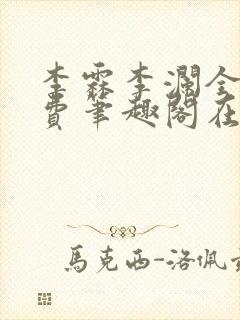 李霖李澜全
费笔趣阁在
馬克西-洛佩兹